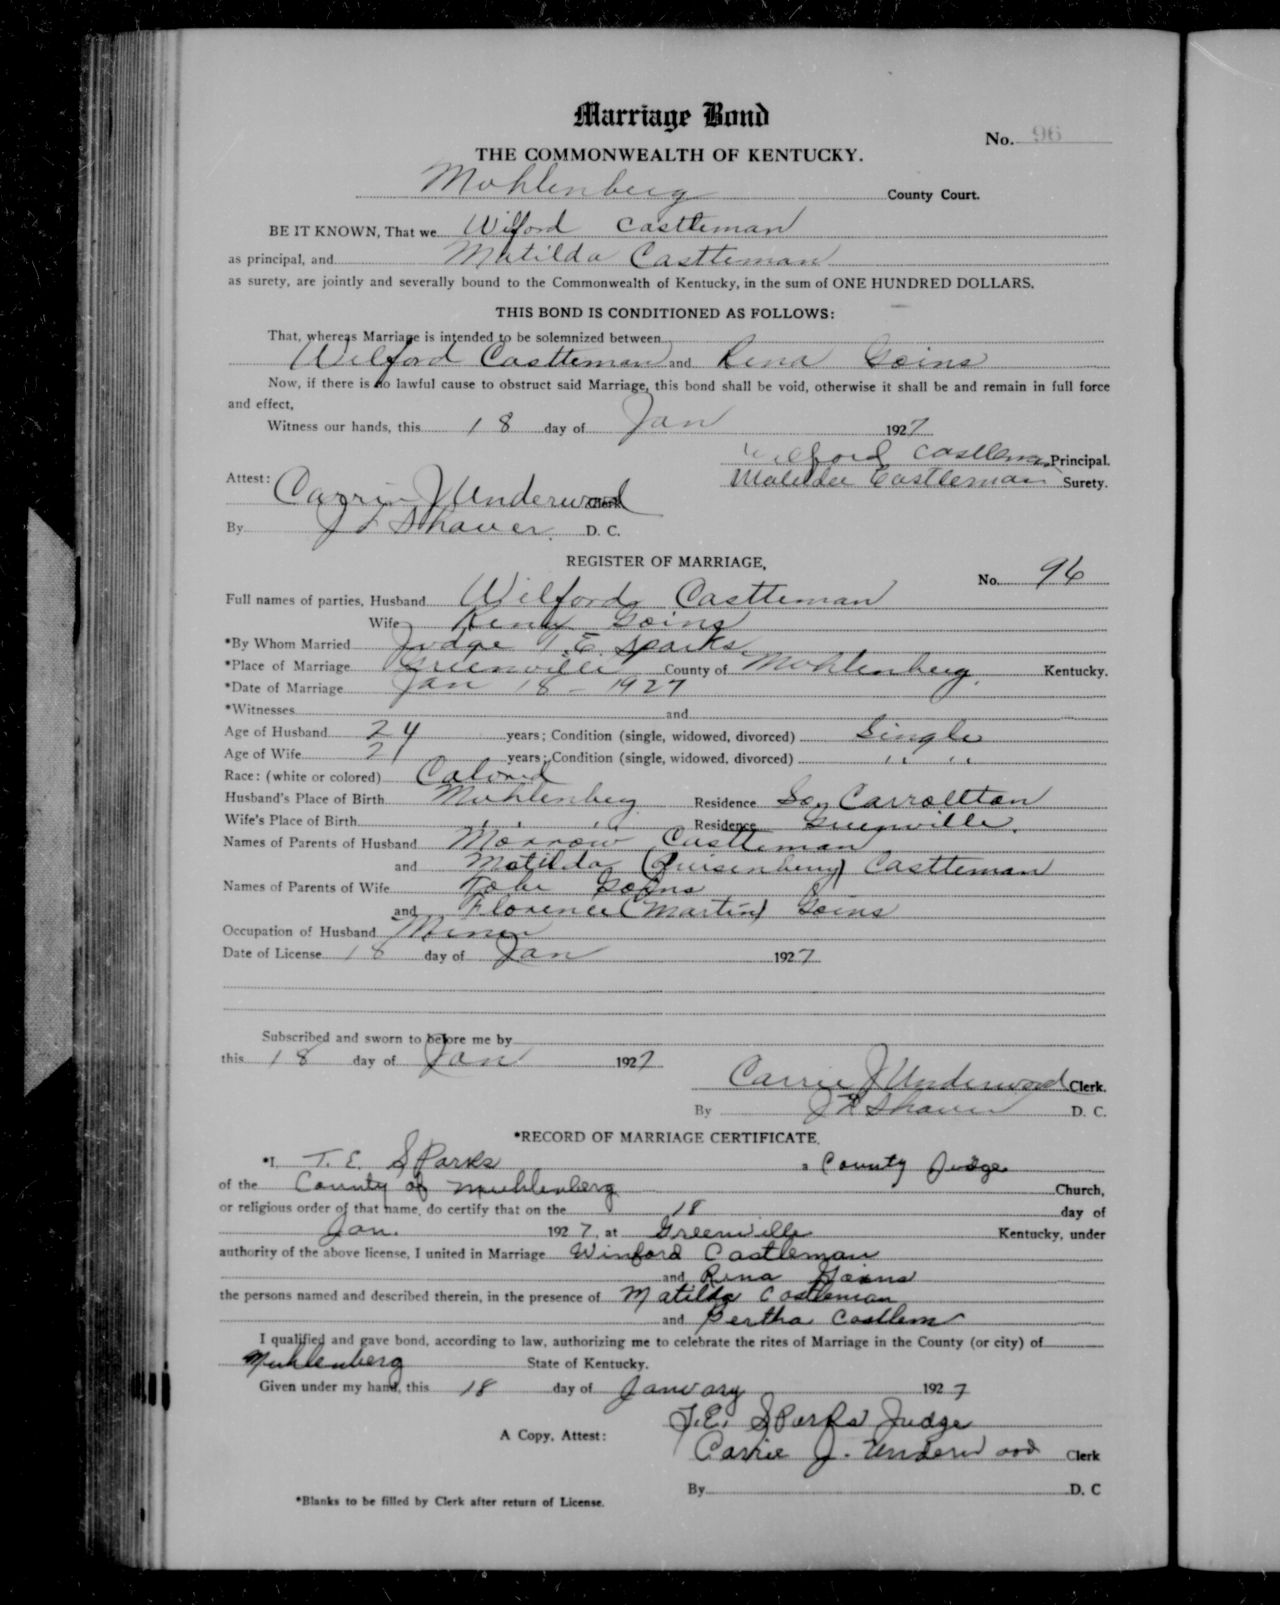 Marriage Bond
No. 96
THE COMMONWEALTH OF KENTUCKY.
Mohlenberg County Court.
BE IT KNOWN, That we Wilford Castleman
as principal, and Matilda Castleman
as surety, are jointly and severally bound to the Commonwealth of Kentucky, in the sum of ONE HUNDRED DOLLARS.
THIS BOND IS CONDITIONED AS FOLLOWS:
That, whereas Marriage is intended to be solemnized between
Wilford Castleman and Rena Goins
Now, if there is no lawful cause to obstruct said Marriage, this bond shall be void, otherwise it shall be and remain in full force
and effect,
Witness our hands, this 18 day of Jan 1927
Wilford Castleman Principal.
Matilda Castleman Surety.
Attest: Carrie J Underwood Clerk
By J L Shaver. D. C.
REGISTER OF MARRIAGE,
No. 96
Full names of parties, Husband Wilford Castleman
Wife Rena Goins
*By Whom Married Judge T. E. Sparks
*Place of Marriage Greenville County of Mohlenberg, Kentucky.
*Date of Marriage Jan 18 - 1927
*Witnesses and
Age of Husband 24 years; Condition (single, widowed, divorced) Single
Age of Wife 21 years; Condition (single, widowed, divorced) " "
Race: (white or colored) Colored
Husband's Place of Birth Mohlenberg Residence So. Carrollton
Wife's Place of Birth " " Residence Greenville.
Names of Parents of Husband Morrow Castleman
and Matilda (Quisenberry) Castleman
Names of Parents of Wife Tobe Goins
and Florence (Martin) Goins
Occupation of Husband Miner
Date of License 18 day of Jan 1927
Subscribed and sworn to before me by
this 18 day of Jan 1927
Carrie J Underwood Clerk.
By J L Shaver D. C.
*RECORD OF MARRIAGE CERTIFICATE.
*I, T. E. Sparks a County Judge
of the County of Muhlenberg Church,
or religious order of that name, do certify that on the 18 day of
Jan. 1927, at Greenville Kentucky, under
authority of the above license, I united in Marriage Winford Castleman
and Rena Goins
the persons named and described therein, in the presence of Matilda Castleman
and Bertha Castlem
I qualified and gave bond, according to law, authorizing me to celebrate the rites of Marriage in the County (or city) of
Muhlenberg State of Kentucky.
Given under my hand, this 18 day of January 1927
T. E. Sparks Judge
A Copy, Attest:
Carrie J. Underwood Clerk
By D. C
*Blanks to be filled by Clerk after return of License.